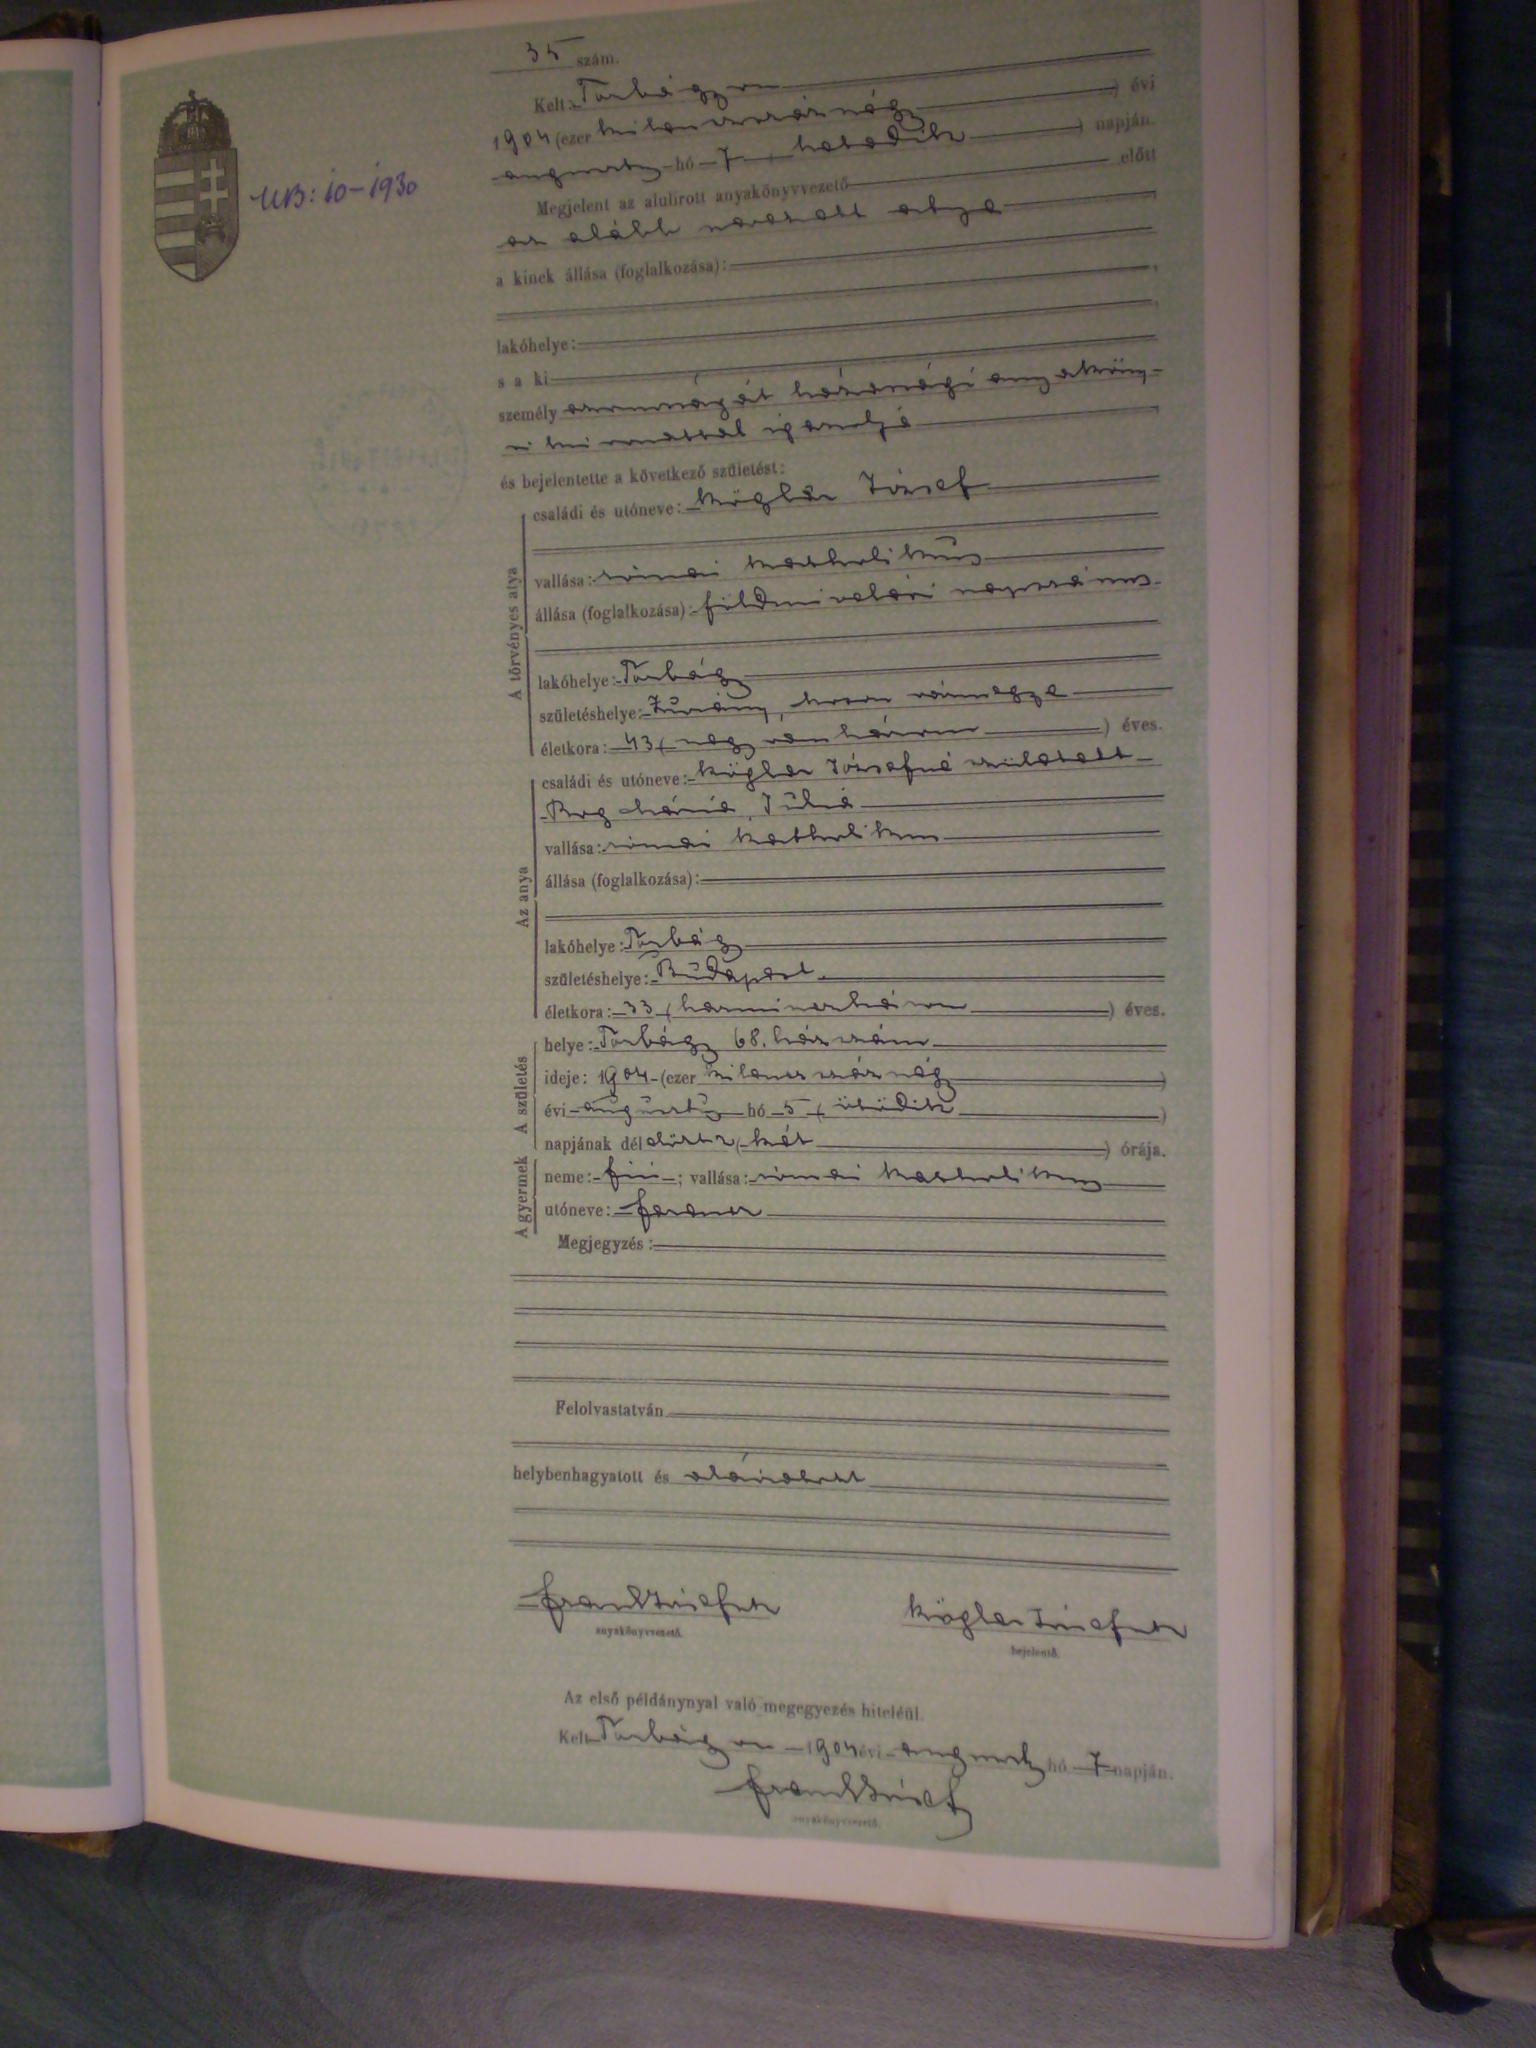 35 szám.
Kelt: Torbágyon
1904 (ezer kilenczszáznégy) évi
augusztus hó 7 napján.
Megjelent az alulirott anyakönyvvezető előtt
UB: 10-1930
az alább nevezett atya
a kinek állása (foglalkozása):
lakóhelye:
s a ki
személy azonosságát házassági anyaköny-
vi kivonattal igazolja
és bejelentette a következő születést:
A törvényes atya
családi és utóneve: Kögler József
vallása: római katholikus
állása (foglalkozása): földmivelési napszámos
lakóhelye: Torbágy
születéshelye: Zurány, Moson vármegye
életkora: 43 (negyvenhárom) éves.
Az anya
családi és utóneve: Kögler Józsefné született
Mária Júlia
vallása: római katholikus
állása (foglalkozása):
lakóhelye: Torbágy
születéshelye: Budapest
életkora: 33 (harminczhárom) éves.
A születés
helye: Torbágy 68. házszám
ideje: 1904 (ezer kilenczszáznégy)
évi augusztus hó 5 (ötödik)
napjának délelőtt 2 (két) órája.
A gyermek
neme: fiú; vallása: római katholikus
utóneve: Ferencz
Megjegyzés:
Felolvastatván
helybenhagyatott és aláiratott
Kögler József
anyakönyvvezető.
bejelentő.
Az első példánynyal való megegyezés hiteléül.
Kelt Torbágyon 1904 évi augusztus hó 7 napján.
anyakönyvvezető.